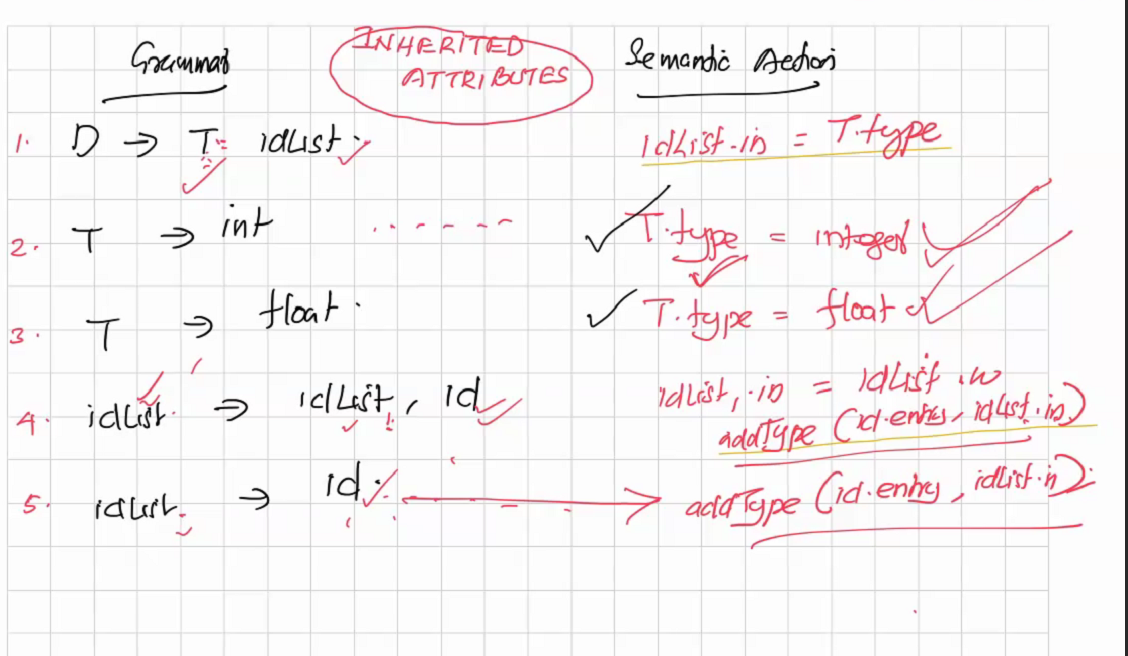 Grammar INHERITED ATTRIBUTES Semantic Action
1. D → T idList. idList.in = T.type
2. T → int ...... T.type = integer
3. T → float. T.type = float
4. idList → idList, id idList,.in = idList.in
addType (id.entry, idList.in)
5. idList → id. → addType (id.entry, idList.in).